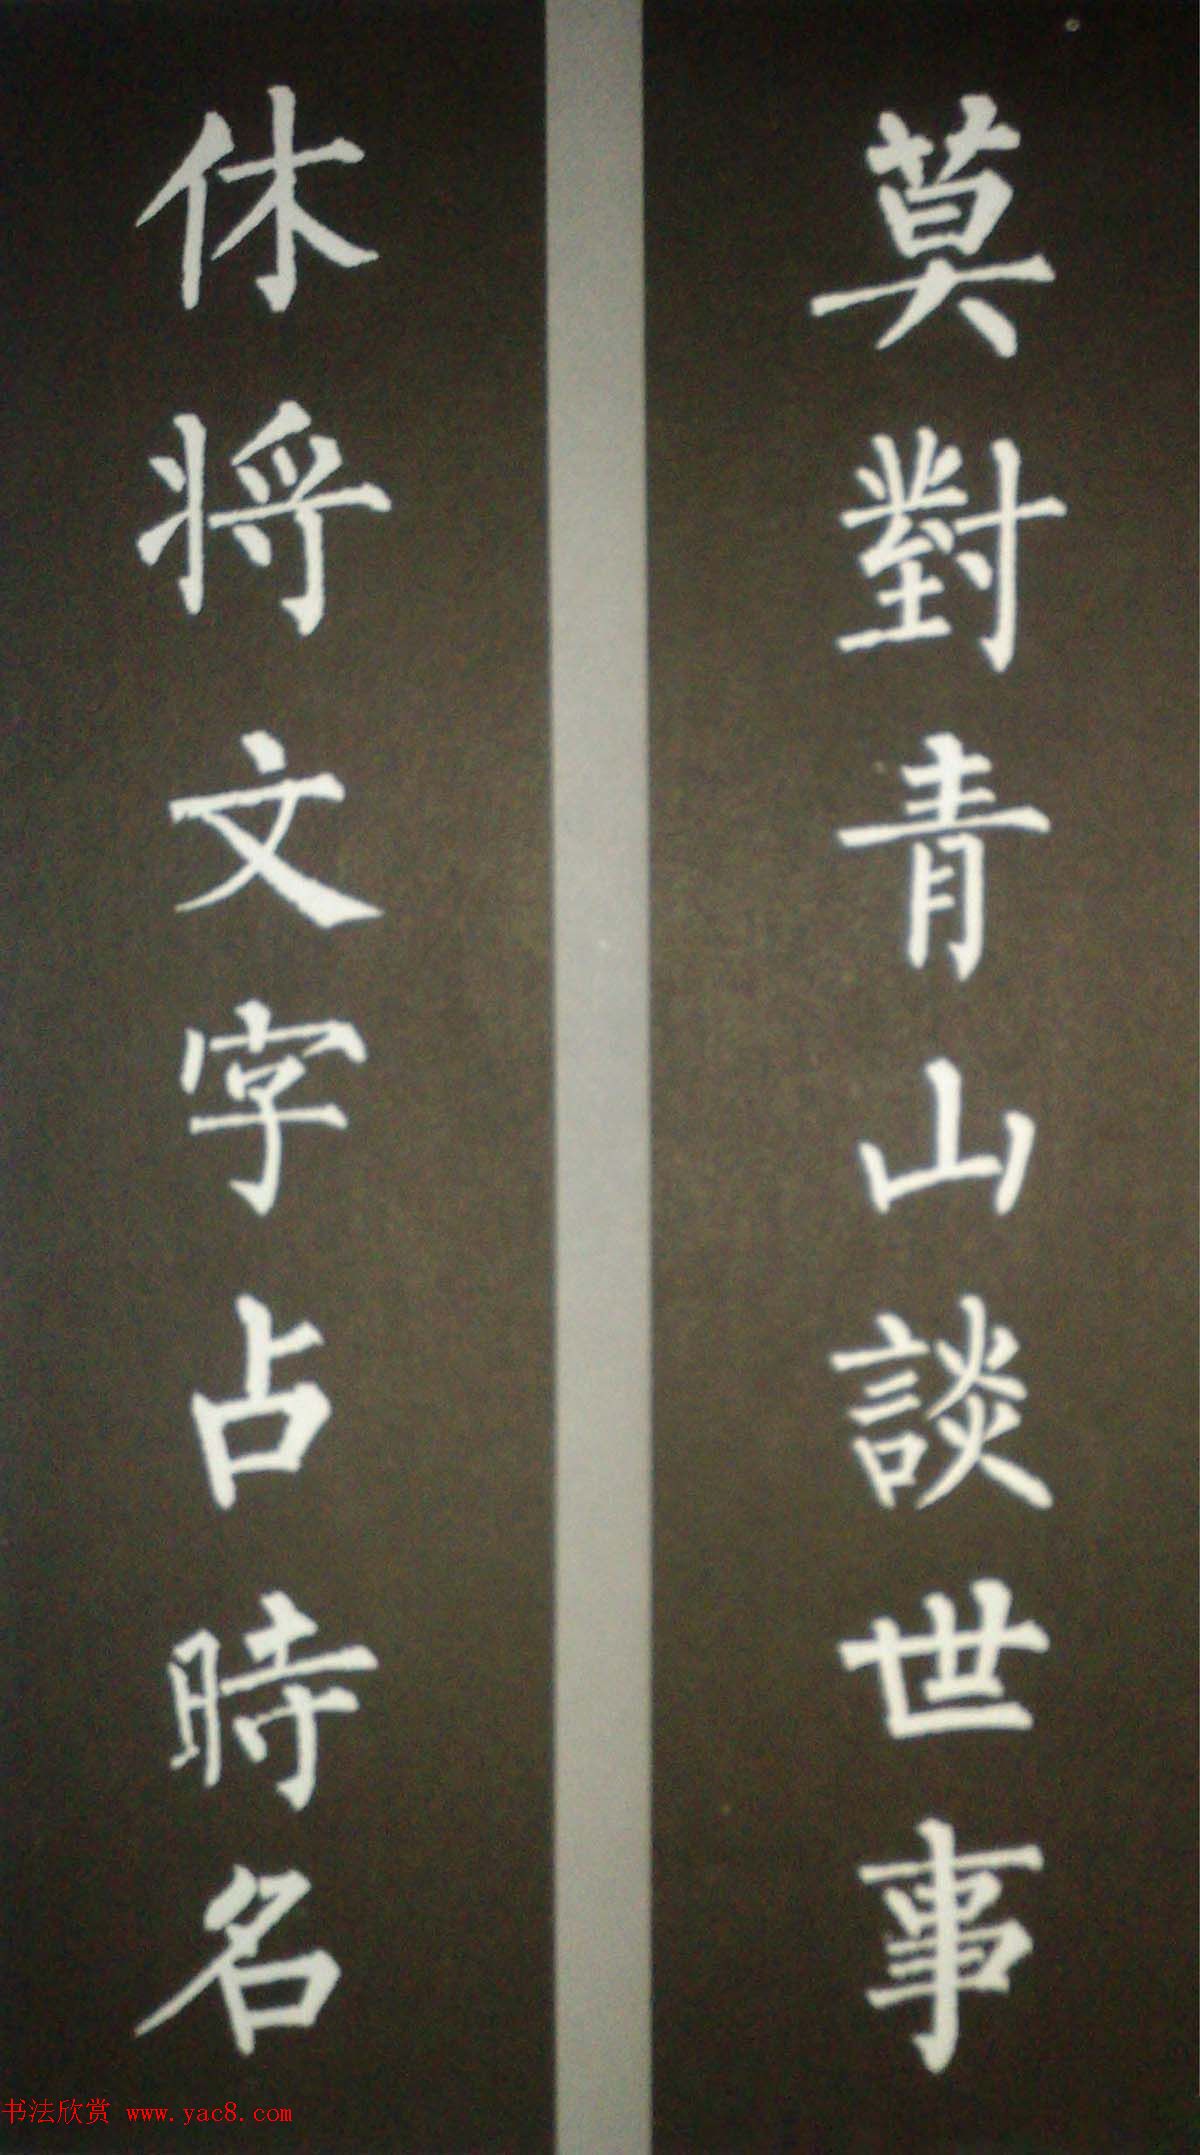 莫對青山談世事
休将文字占時名
书法欣赏 www.yac8.com